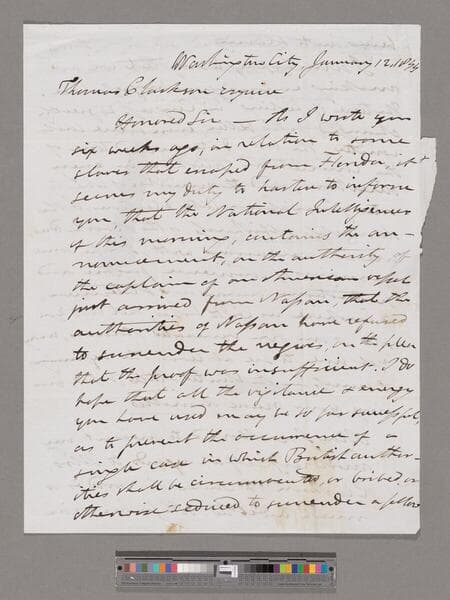 Washington City, January 12, 1844
Thomas Clarkson esquire
Honored Sir — As I wrote you
six weeks ago, in relation to some
slaves that escaped from Florida, it
seems my duty to hasten to inform
you, that the National Intelligencer
of this morning, contains the an-
nouncement, on the authority of
the captain of an American vessel
just arrived from Nassau, that the
authorities of Nassau have refused
to surrender the negroes, on the plea
that the proof was insufficient. I do
hope that all the vigilance & energy
you have used may be so far successful,
as to prevent the occurrence of a
single case in which British author-
ities shall be circumvented, or bribed, or
otherwise seduced to surrender a fellow